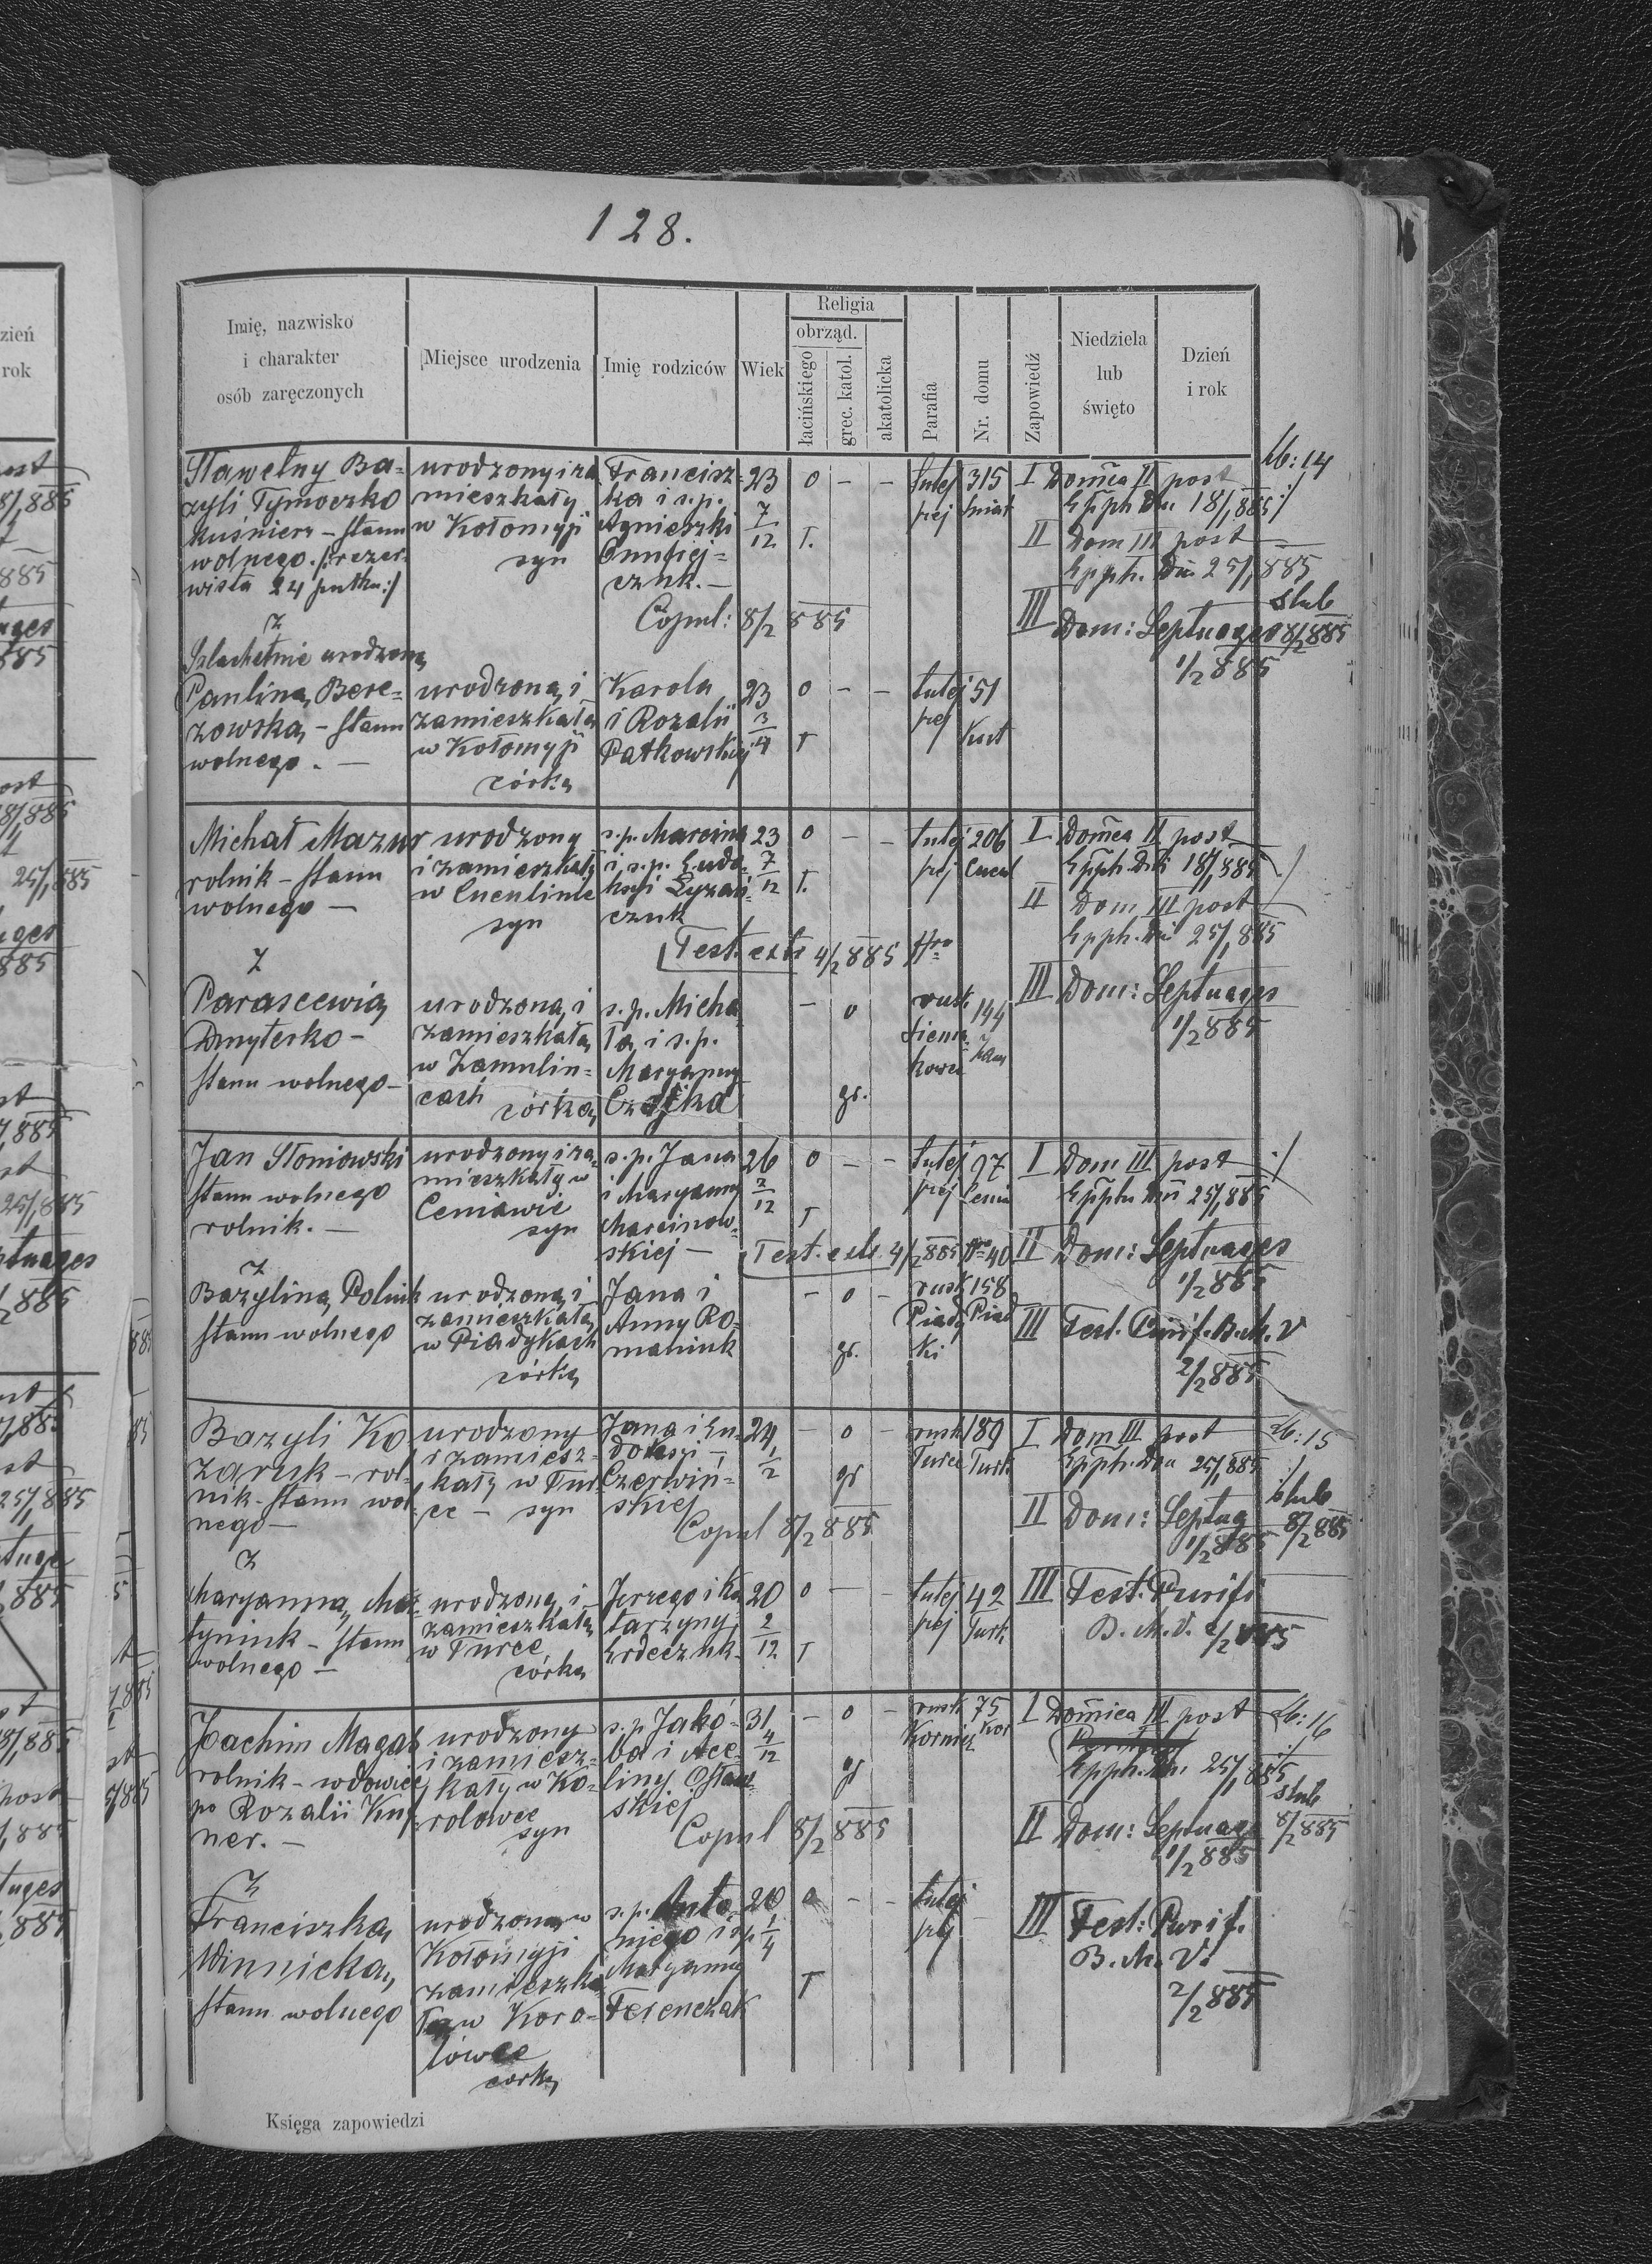 128.
Imię, nazwisko
i charakter
osób zaręczonych
Miejsce urodzenia
Imię rodziców
Wiek
Religia
obrząd.
łacińskiego
grec. katol.
akatolicka
Parafia
Nr. domu
Zapowiedź
Niedziela
lub
święto
Dzień
i rok
Sławetny Ba-
zyli Tymoczko
kuśnierz - stanu
wolnego. /: rezer-
wista 24 pułku :/
urodzony i za
mieszkały
w Kołomyji
syn
Francisz-
ka i s.p.
Agnieszki
czuk. -
23 7/12
o - -
T.
tutej
szej
315
I Domca II post
Epph Dni 18/1 885
II Dom III post
Epph. Dni 25/1 885
III Dom: Septuages
1/2 885
Lb: 14
slub
8/2 885
Copul: 8/2 885
z
Szlachetnie urodzoną
Pauliną Bere-
zowską - stanu
wolnego. -
urodzoną i
zamieszkałą
w Kołomyji
córką
Karola
i Rozalii
Patkowskiej
23 3/4
o - -
T
tutej
szej
51
Kut
Michał Mazur
rolnik - stanu
wolnego -
urodzony
i zamieszkały
w Cucnlinie
syn
s.p. Marcina
i s.p. Eudo-
czuk
23 7/12
o - -
T.
tutej
szej
206
Cucul
I Domca II post
Epph. Dni 18/1 885
II Dom III post
Epph. Dni 25/1 885
III Dom: Septuages
1/2 885
Test. extr 4/2 885
z
Parascewią
Dmyterko -
stanu wolnego -
urodzoną i
zamieszkałą
w Zamulin-
cach
córką
s.p. Micha
ła i s.p.
Maryanny
- o
gr.
rusk
144
Zam
Jan Słoniowski
stanu wolnego
rolnik. -
urodzony i za-
mieszkały w
Ceniawie
syn
s.p. Jana
i Maryanny
Marcinow-
skiej -
26 2/12
o - -
T
tutej
szej
97
Cenia
I Dom III post
Epph Dni 25/1 885
II Dom: Septuages
1/2 885
III Fest. Purif. B. M. V
2/2 885
Test. extr. 4/2 885 Nro 40
z
Bazyliną Poliuk
stanu wolnego
urodzoną i
zamieszkałą
w Piadykach
córką
Jana i
Anny Ro-
maniuk
- o -
gr.
rusk
Piady
ki
158
Piad
Bazyli Ko
zaruk - rol-
nik - stanu wol-
nego -
urodzony
i zamiesz-
kały w Tur-
ce - syn
Jana i Eu-
dokyi -
Czerwiń-
skiej
24 1/2
- o -
gr
rusk
Turce
189
Turk
I Dom III post
Epph. Dni 25/1 885
II Dom: Septua
1/2 885
III Fest. Purifi
B. M. V. 2/2 885
Lb: 15
slub
8/2 885
Copul 8/2 885
z
Maryanną Mar-
tyniuk - stanu
wolnego -
urodzoną i
zamieszkałą
w Turce
córką
Jerzego i Ka
tarzyny
Erdeczuk
20 2/12
o - -
T
tutej
szej
42
Turk
Joachim Magas
rolnik - wdowiec
po Rozalii Kuf-
ner. -
urodzony
i zamiesz-
kały w Ko-
rolowce
syn
s.p. Jakó-
ba i Ace-
liny Ostaw-
skiej
31 4/12
- o -
gr
rusk
Kornicz
75
Kor
I Domica III post
Epph. Dni 25/1 885
II Dom: Septuage
1/2 885
III Fest: Purif.
B. M. V.
2/2 885
Lb: 16
slub
8/2 885
Copul 8/2 885
z
Franciszką
Winnicką,
stanu wolnego
urodzoną w
Kołomyji
zamieszka
łą w Koro-
lówce
córką
s.p. Anto-
niego i s.p.
Maryanny
Ferenczak
20 1/4
o - -
T
tutej
szej
Księga zapowiedzi